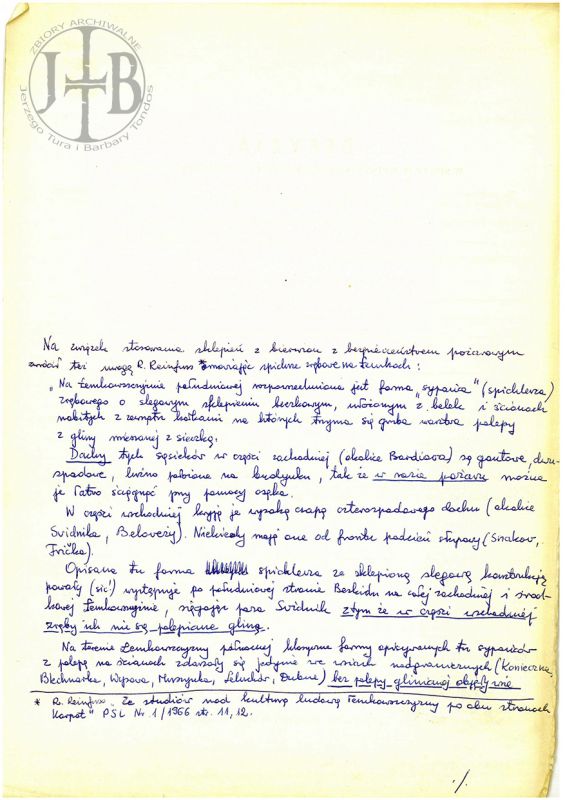 ZBIORY ARCHIWALNE
JTB
Jerzego Tura i Barbary Tondos
Na związek stosowania sklepień z bierwion z bezpieczeństwem pożarowym
zwrócił też uwagę R. Reinfuss * omawiając spichrze zrębowe na Łemkach:
„Na Łemkowszczyźnie południowej rozpowszechniona jest forma „sypańca" (spichlerza)
zrębowego o ślęgowym sklepieniu beczkowym, ułożonym z belek i ścianach
nabitych z zewnątrz kołkami na których trzyma się gruba warstwa polepy
z gliny mieszanej z sieczką.
Dachy tych sąsieków w części zachodniej (okolice Bardiova) są gontowe, dwu-
spadowe, luźno położone na budynku, tak że w razie pożaru można
je łatwo ściągnąć przy pomocy osęka.
W części wschodniej kryją je wysoką czapą czterospadowego dachu (okolice
Svidnika, Beloveży). Niekiedy mają one od frontu podcień słupowy (Smakov,
Frička).
Opisana tu forma spichlerza ze sklepioną ślęgową konstrukcją
powały (sic!) występuje po południowej stronie Beskidu na całej zachodniej i środ-
kowej Łemkowszczyźnie, sięgając poza Svidnik z tym że w części wschodniej
zręby ich nie są polepiane gliną.
Na terenie Łemkowszczyzny północnej klasyczne formy opisywanych tu sypańców
z polepą na ścianach zdarzały się jedynie we wsiach nadgranicznych (Konieczna,
Blechnarka, Wysowa, Muszynka, Leluchów, Dubne) bez polepy glinianej
* R. Reinfuss „Ze studiów nad kulturą ludową Łemkowszczyzny po obu stronach
Karpat" PSL Nr 1/1966 str. 11, 12.
./.